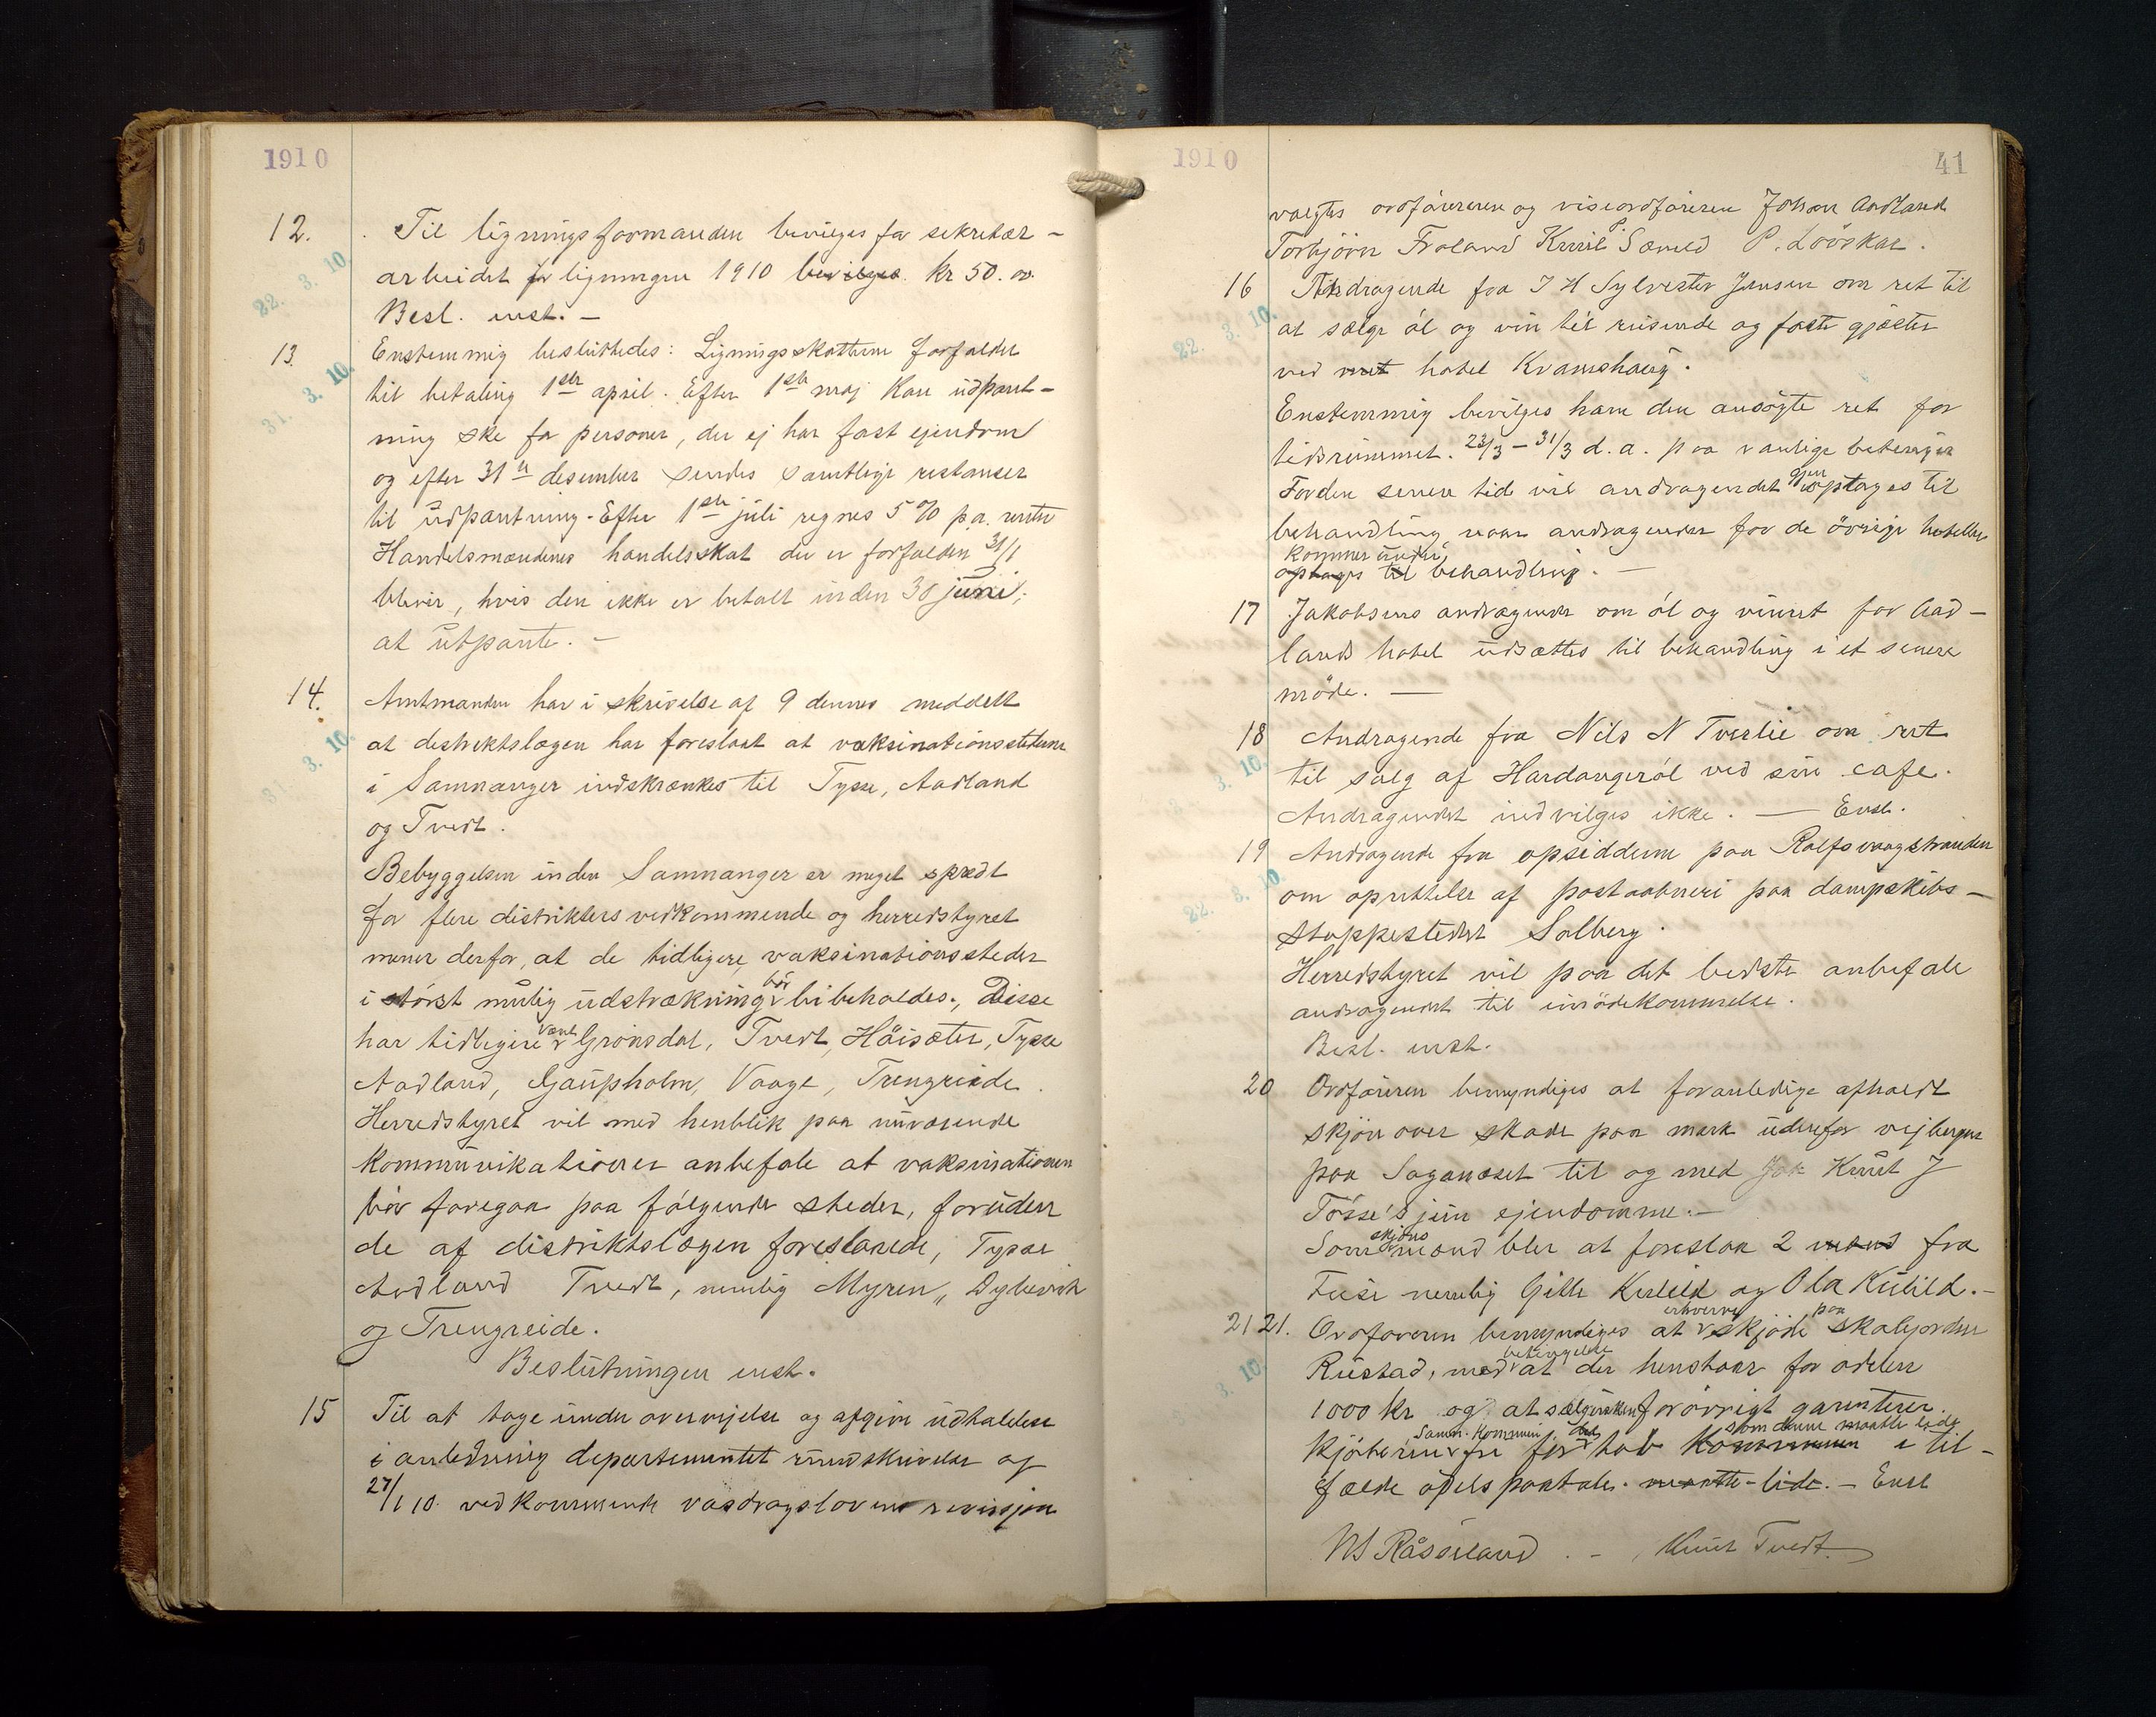 1910
12. Til ligningsformanden bevilges for sekretær-
22. 3. 10.
arbeidet for ligningen 1910 bevilges kr 50.oo.
Besl. enst. –
13. Enstemmig besluttedes: Ligningsskatterne forfalder
31. 3. 10.
til betaling 1ste april. Efter 1ste maj kan udpant-
ning ske for personer, der ej har fast ejendom
og efter 31te desember sendes samtlige restanser
til udpantning. Efter 1ste juli regnes 5 % p.a. rente
Handelsmændenes handelsskat der er forfalden 31/1
blever, hvis den ikke er betalt inden 30 juni,
at utpante. –
14. Amtmanden har i skrivelse af 9 dennes meddelt
3. 10.
at destriktslægen har foreslaat at vaksinationsstederne
i Samnanger indskrænkes til Tysse, Aadland
og Tvedt.
Bebyggelsen inden Samnanger er meget spredt
for flere distrikters vedkommende og herredstyret
mener derfor, at de tidligere vaksinationssteder
i störst mulig udstrækning bör bibeholdes. Disse
har tidligere været Grönsdal, Tvedt, Höisæter, Tysse
Aadland, Gaupholm, Vaage, Trengreide.
Herredstyret vil med henblik paa nuværende
kommunikationer anbefale at vaksinationen
bör foregaa paa fölgende steder, foruden
de af distriktslægen foreslaaede, Tysse
Aadland Tvedt, nemlig Myren, Dyhevik
og Trengreide.
Beslutningen enst.
15 Til at tage under overvejelse og afgive udtalelse
i anledning departementet rundskrivelse af
27/1 10. vedkommende vasdragslovens revisjon
1910
41
valgtes ordföreren og viseordföreren Johan Aadland
Torbjörn Fröland Knut P. Sæveld P. Lövskar.
16 Andragende fra J H Sylvester Jensen om ret til
22. 3. 10.
at sælge öl og vin til reisende og faste gjæster
ved hotel Kvamshaug.
Enstemmig bevilges ham den ansögte ret for
tidsrummet 23/3 – 31/3 d.a. paa vanlige betingelser
For den senere tid vil andragendet igjen optages til
behandling, naar andragender for de övrige hoteller
kommer under
optages til behandling. –
17 Jakobsens andragende om öl og vinret for Aad-
lands hotel udsættes til behandling i et senere
möde. –
18 Andragende fra Nils N Tverlie om ret
3. 10.
til salg af Hardangeröl ved sin cafe.
Andragendet indvilges ikke. – Enst.
19 Andragende fra opsidderne paa Rolfsvaagstranden
22. 3. 10.
om oprettelse af postaabneri paa dampskibs-
stoppestedet Solberg.
Herredstyret vil paa det bedste anbefale
andragendet til imödekommelse.
Besl. enst.
20 Ordföreren bemyndiges at foranledige afholdt
skjön over skade paa mark udenfor vejbergene
paa Saganæset til og med Knut J
Tösse's jun ejendomme. –
Som skjöns mænd blev at foreslaa 2 mænd fra
Fuse nemlig Gitle Kirleld og Ola Kilild. –
21 21. Ordföreren bemyndiges at erhverve skjöde paa skolejorden
3. 10.
Rustad, med betingelse at der henstaar for odelen
1000 kr og at sælgersken forövrigt garanterer
kjöberen Samn. kommune fri for det tab kommunen som denne maatte lide i til-
fælde odels paatale. maatte lide. – Enst
NS Råsseland . – Knut Tvedt.